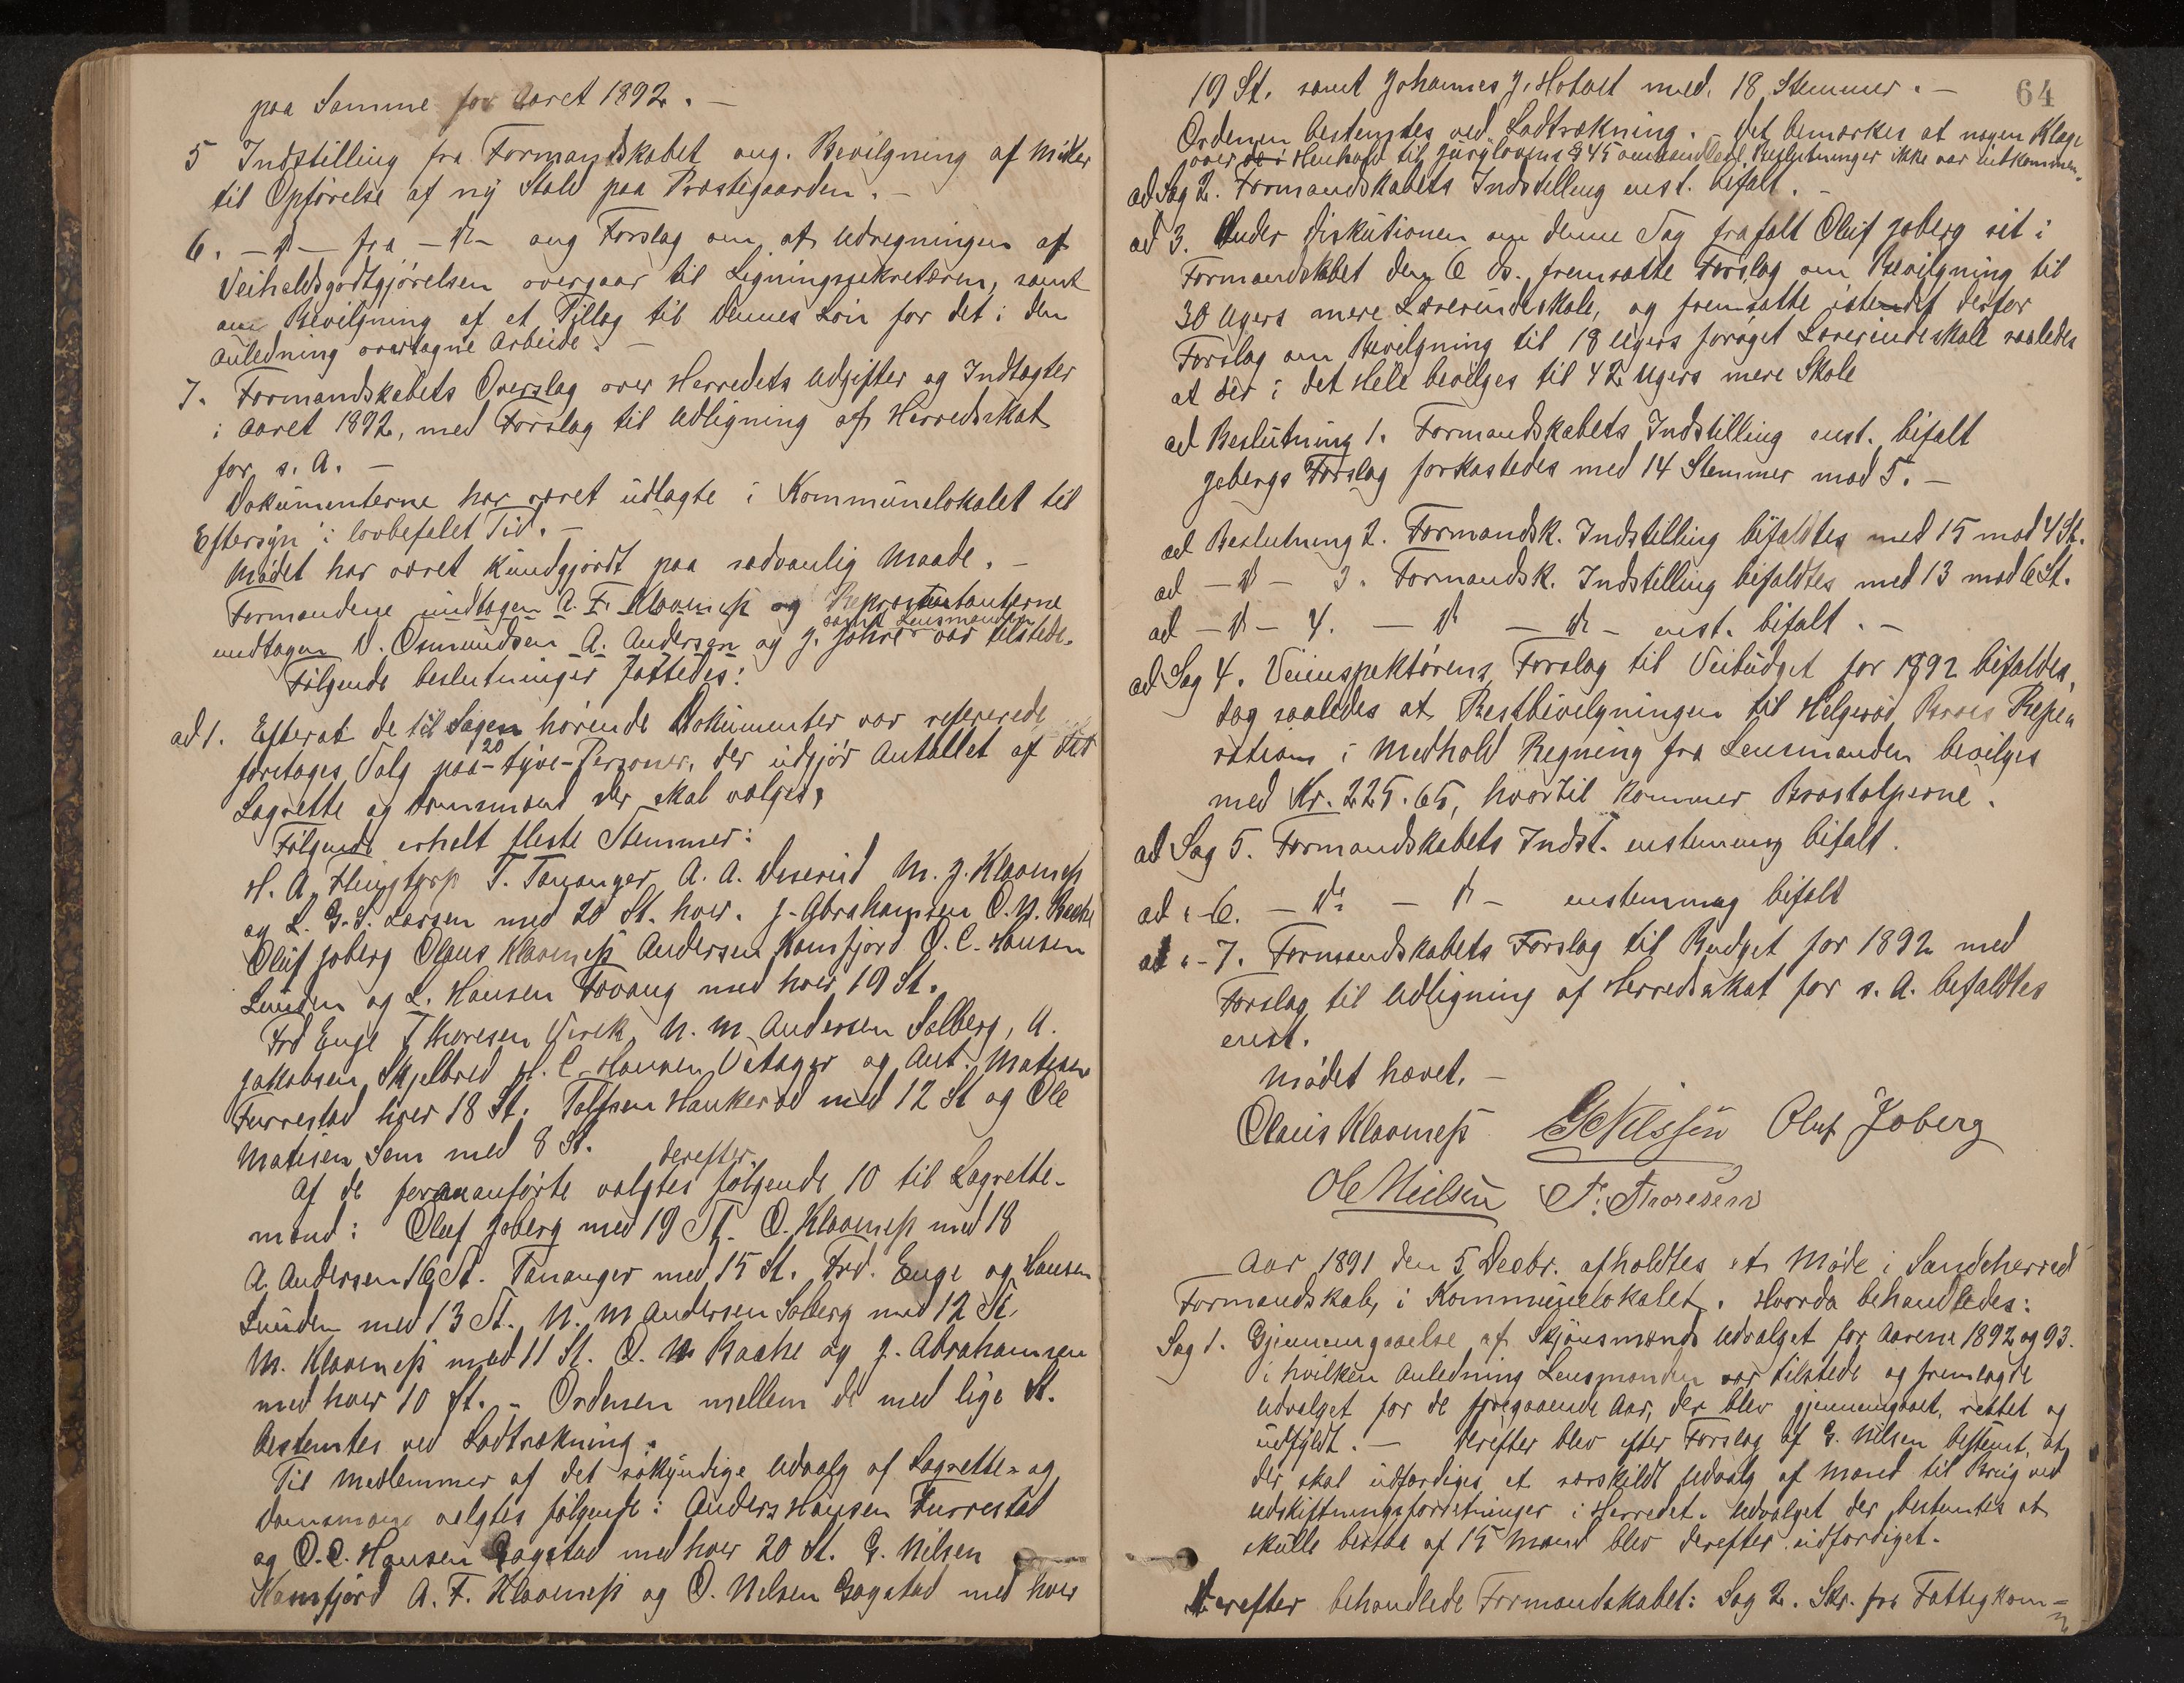 paa Samme for Aaret 1892. —
5 Indstilling fra Formandskabet ang. Bevilgning af Midler
til Opførelse af ny Stald paa Præstegaarden. —
6. — d — fra — d — ang Forslag om at Udregningen af
Veiholdsgodtgjørelsen overgaar til Ligningssekretæren, samt
om Bevilgning af et Tillæg til dennes Løn for det i den
Anledning overtagne Arbeide. —
7. Formandskabets Overslag over Herredets Udgifter og Indtægter
i Aaret 1892, med Forslag til Udligning af Herredsskat
for s. A. —
Dokumenterne har været udlagte i Kommunelokalet til
Eftersyn i lovbefalet Tid. —
Mødet har været kundgjordt paa sædvanlig Maade. —
Formændene undtagen A. F. Klavenesß og Repræsentanterne
samt Lensmanden
undtagen N. Osmundsen A. Andersen og J. Johre var tilstede.
Følgende beslutninger fattedes:
ad 1. Efterat de til Sagen hørende Dokumenter var refererede
foretages Valg paa 20 - tyve - Personer, der udgjør Antallet af det
Lagrette og Domsmænd der skal vælges,
Følgende erholt fleste Stemmer:
H. A. Flingtorp T. Tananger A. A. M. J. Klavenesß
og L. G. S. Larsen med 20 St. hver. J. Abrahamsen O. N. Bache
Oluf Joberg Olaus Klavenesß Andersen Kamfjord O. C. Hansen
Lunden og L. Hansen Fovang med hver 19 St.
Frd Enge F Thoresen Virik N. M. Andersen Solberg, A.
Jakobsen Skjelbred H. C. Hansen Vetager og Ant. Matisen
Furrestad hver 18 St. Tolfsen Haukerød med 12 St og Ole
Matisen Sem med 8 St.
derefter
Af de forananførte valgtes følgende 10 til Lagrette-
mænd: Oluf Joberg med 19 St. O. Klavenesß med 18
A. Andersen 16 St. Tananger med 15 St. Frd. Enge og Hansen
Lunden med 13 St. N. M Andersen Solberg med 12 St.
M. Klavenesß med 11 St. O. N Baahe og J. Abrahamsen
med hver 10 St. - Ordenen mellem de med lige St.
bestemtes ved Lodtrækning.
Til Medlemmer af det sakyndige Udvalg af Lagrette- og
Domsmænd valgtes følgende: Anders Hansen Furrestad
og O. C. Hansen Gogstad med hver 20 St. G. Nilsen
Kamfjord A. F. Klavenesß og O. Nilsen Gogstad med hver
64
19 St. samt Johannes J. Hotvet med 18 Stemmer. —
Ordenen bestemtes ved Lodtrækning. — Det bemærkes at nogen Klage
over de i Henhold til Jurylovens § 45 omhandlede Beslutninger ikke var indkommen.
ad Sag 2. Formandskabets Indstilling enst. bifalt. —
ad 3. Under Diskutionen om denne Sag frafalt Oluf Joberg sit i
Formandskabet den 6 ds. fremsatte Forslag om Bevilgning til
30 Ugers mere Lærerindeskole, og fremsatte istedet derfor
Forslag om Bevilgning til 18 Ugers forøget Lærerindeskole saaledes
at der i det Hele bevilges til 42 Ugers mere Skole
ad Beslutning 1. Formandskabets Indstilling enst. bifalt
Jobergs Forslag forkastedes med 14 Stemmer mod 5. —
ad Beslutning 2. Formandsk. Indstilling bifaldtes med 15 mod 4 St.
ad — d — 3. Formandsk. Indstilling bifaldtes med 13 mod 6 St.
ad — d — 4. — d — d — enst. bifalt. —
ad Sag 4. Veiinspektørens Forslag til Veibudget for 1892 bifaldes,
dog saaledes at Restbevilgningen til Helgerød Broes Repa-
ration i Medhold Regning fra Lensmanden bevilges
med Kr. 225.65, hvortil kommer Brostolperne.
ad Sag 5. Formandskabets Indst. enstemmig bifalt.
ad " 6. — d — d — enstemmig bifalt
ad " - 7. Formandskabets Forslag til Budget for 1892 med
Forslag til Udligning af Herredsskat for s. A. bifaldtes
enst.
Mødet hævet. —
Olaus Klavenesß G Nilssen Oluf Joberg
Ole Nielsen F. Thoresen
Aar 1891 den 5 Decbr. afholdtes et Møde i Sandeherred
Formandskab, i Kommunelokalet. Hvorda behandledes:
Sag 1. Gjennemgaaelse af Skjønsmænds Udvalget for Aarene 1892 og 93.
i hvilken Anledning Lensmanden var tilstede og fremlagde
Udvalget for de foregaaende Aar, der blev gjennemgaaet, rettet og
udfyldt. — Derefter blev efter Forslag af G. Nilsen bestemt, at
der skal udfærdiges et særskildt Udvalg af Mænd til Brug ved
Udskiftningsforretninger i Herredet. Udvalget der bestemtes at
skulle bestaa af 15 Mænd blev derefter udfærdiget.
Derefter behandlede Formandskabet: Sag 2. Skr. fra Fattigkom-